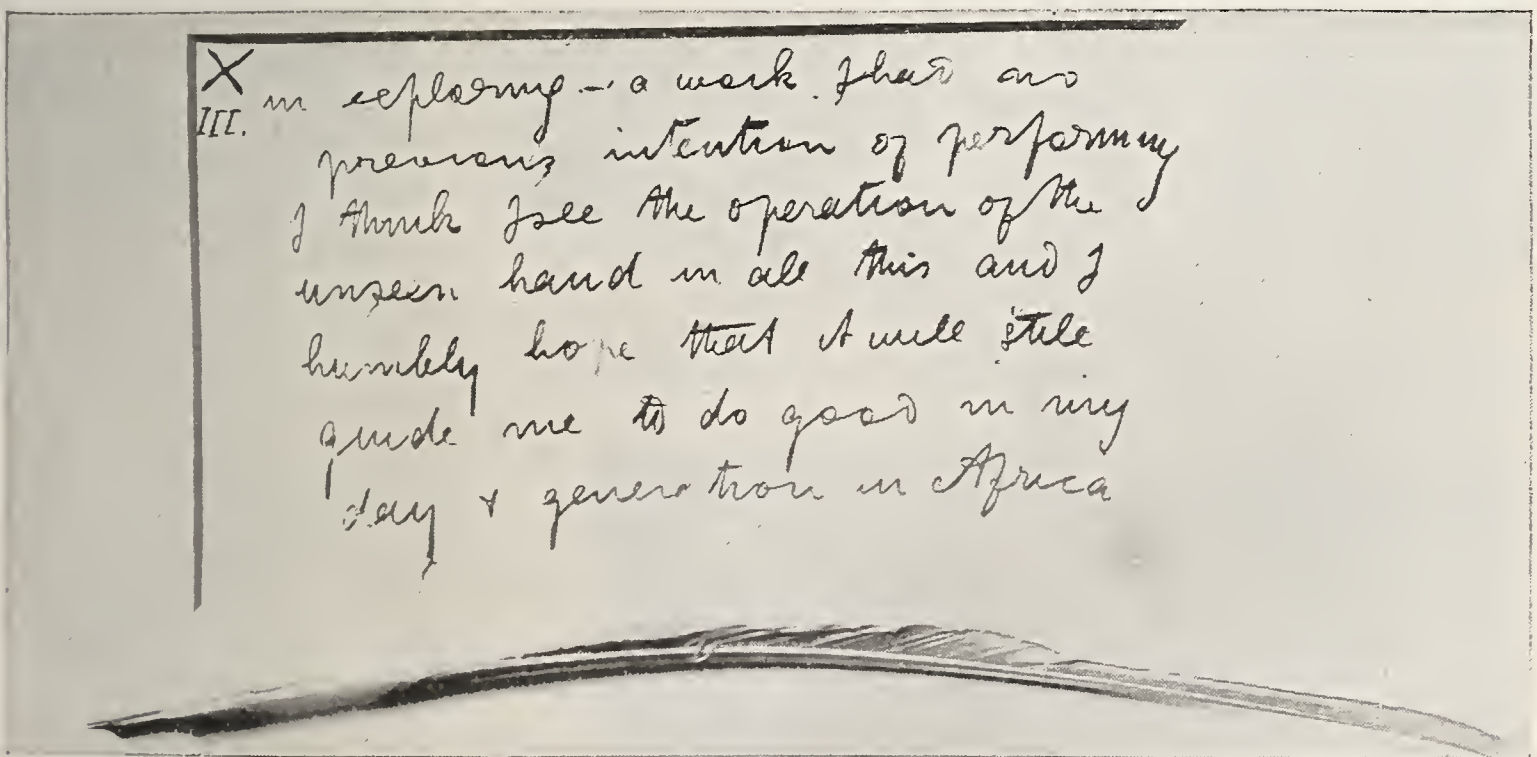 X
III.
in exploring - a work I had no
previous intention of performing
I think I see the operation of the
unseen hand in all this and I
humbly hope that it will still
guide me to do good in my
day & generation in Africa